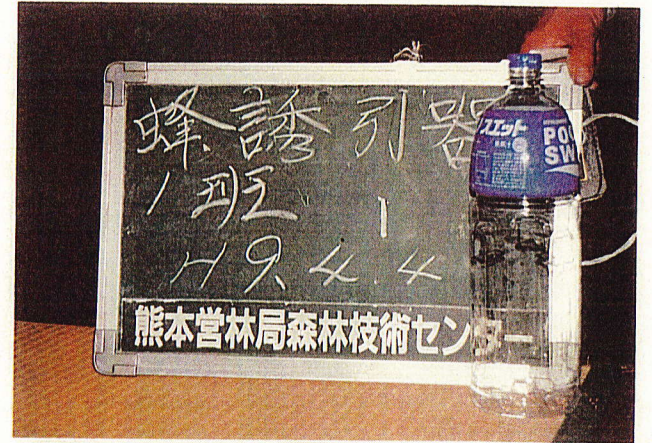 蜂誘引器
1班 1
H9.4.4
熊本営林局森林技術センター
スエット
POC
SW